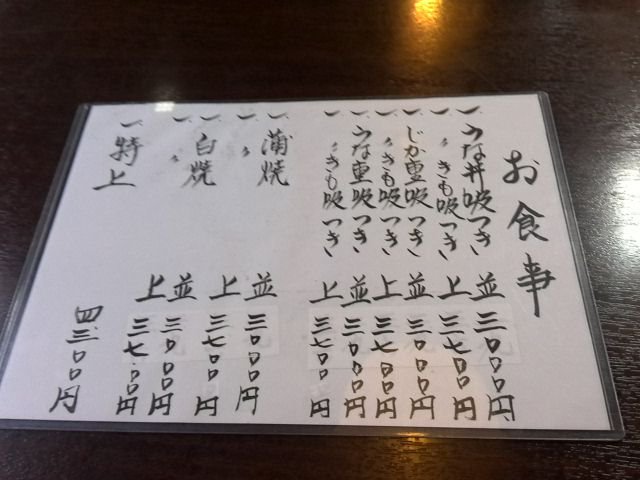 お食事
一、うな丼吸つき、並 三〇〇〇円
一、〃きも吸つき、上 三七〇〇円
一、じか重吸つき、並 三〇〇〇円
一、〃きも吸つき、上 三七〇〇円
一、うな重吸つき、並 三〇〇〇円
一、〃きも吸つき、上 三七〇〇円
一、蒲焼 並 三〇〇〇円
一、〃 上 三七〇〇円
一、白焼 並 三〇〇〇円
一、〃 上 三七〇〇円
一、特上 四三〇〇円